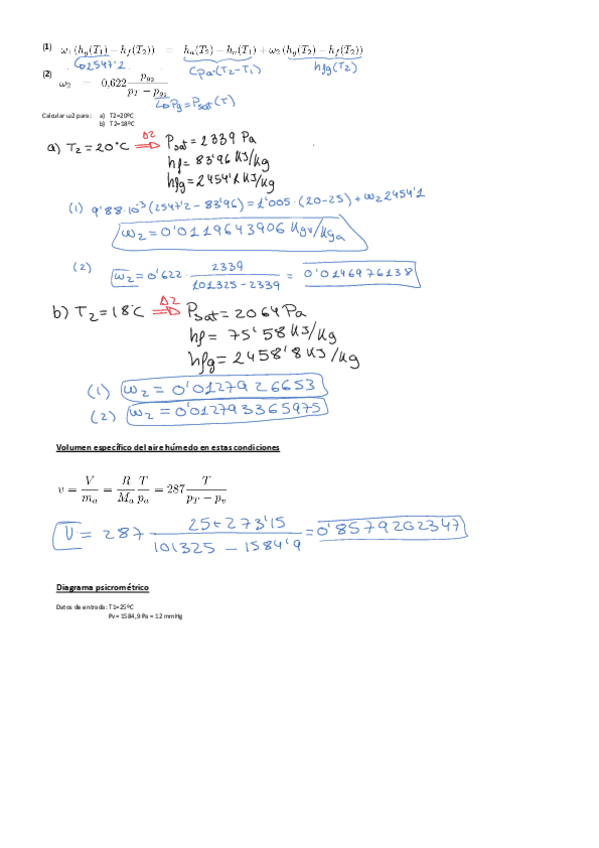 (1) ω₁(h_g(T₁) − h_f(T₂)) = h_a(T₂) − h_a(T₁) + ω₂(h_g(T₂) − h_f(T₂))
2547'2 Cpa·(T₂-T₁) hfg(T₂)
(2) ω₂ = 0,622 p_g2 / (p_T − p_g2)
Pg = Psat(T)
Calcular ω2 para: a) T2=20ºC
b) T2=18ºC
a) T₂ = 20°C ⇒ Psat = 2339 Pa
Δ2
hf = 83'96 KJ/Kg
hfg = 2454'1 KJ/Kg
(1) 9'88·10⁻³(2547'2 - 83'96) = 1'005·(20-25) + ω₂ 2454'1
ω₂ = 0'0119643906 Kgv/Kga
(2) ω₂ = 0'622· 2339 / (101325 - 2339) = 0'0146976138
b) T₂ = 18°C ⇒ Psat = 2064 Pa
Δ2
hf = 75'58 KJ/Kg
hfg = 2458'8 KJ/Kg
(1) ω₂ = 0'0127926653
(2) ω₂ = 0'012793365975
Volumen específico del aire húmedo en estas condiciones
v = V / m_a = R / M_a T / p_a = 287 T / (p_T − p_v)
v = 287 (25+273'15) / (101325 - 1584'9) = 0'8579202347
Diagrama psicrométrico
Datos de entrada: T1=25ºC
Pv= 1584,9 Pa = 12 mmHg